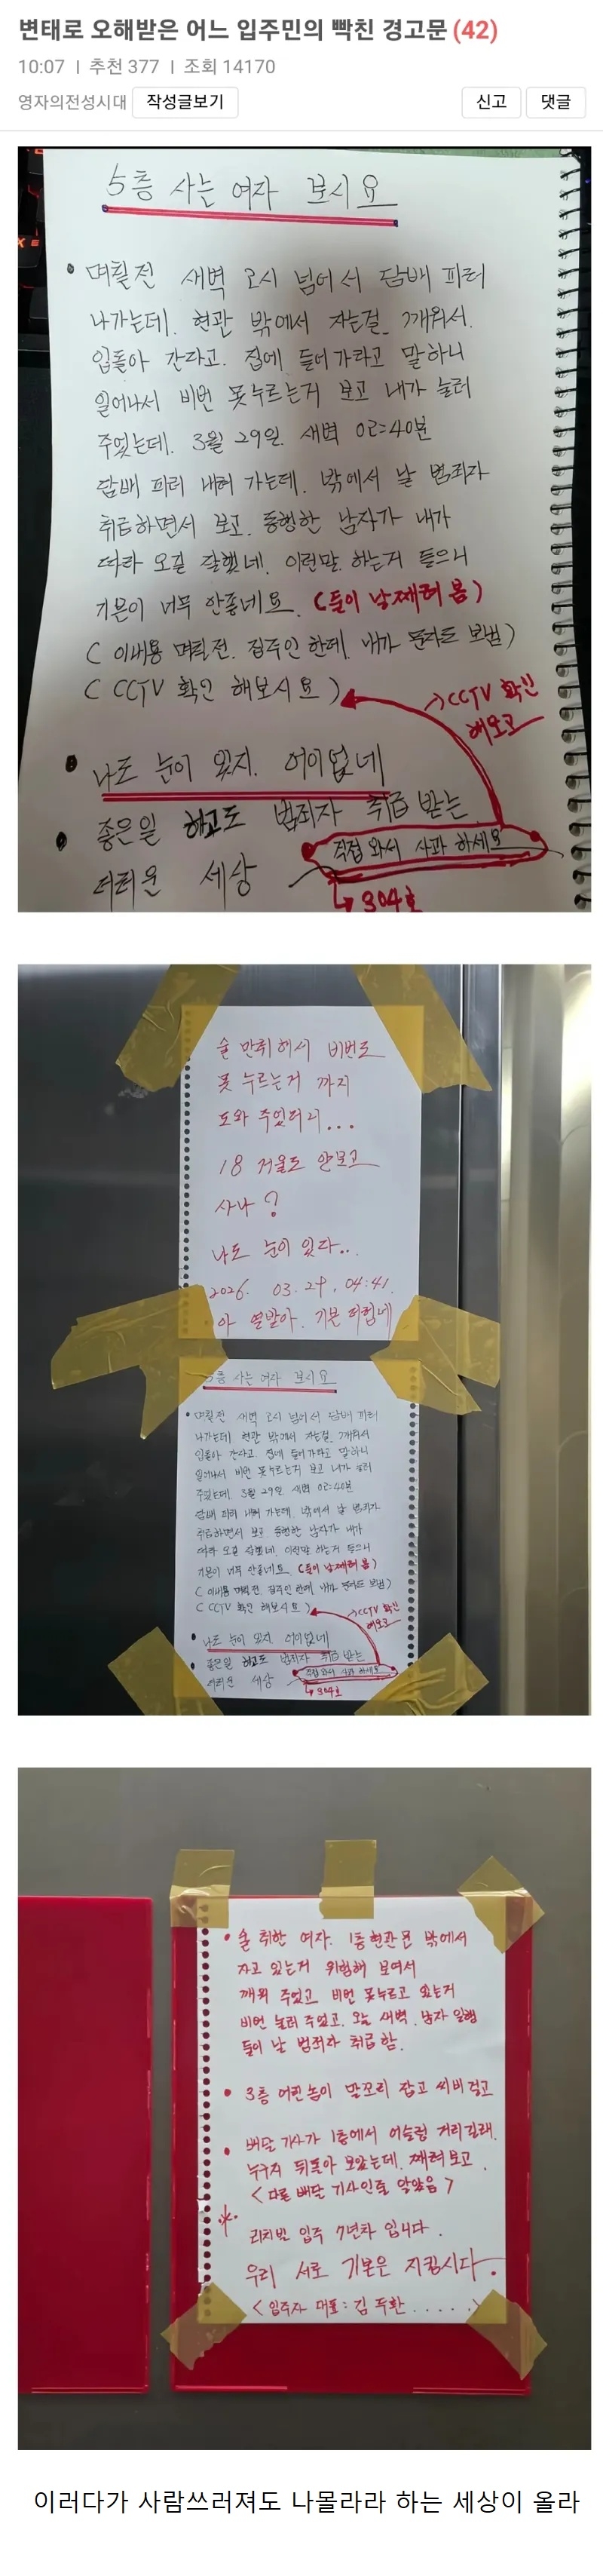 변태로 오해받은 어느 입주민의 빡친 경고문 (42)
10:07 | 추천 377 | 조회 14170
영자의전성시대 작성글보기 신고 댓글
5층 사는 여자 보시요
• 며칠전 새벽 2시 넘어서 담배 피러
나가는데. 현관 밖에서 자는걸. 깨워서.
입돌아 간다고. 집에 들어가라고 말하니
일어나서 비번 못누르는거 보고 내가 눌러
주었는데. 3월 29일. 새벽 02:40분
담배 피러 내려 가는데. 밖에서 날 범죄자
취급하면서 보고. 동행한 남자가 내가
따라 오길 잘했네. 이런말. 하는거 들으니
기분이 너무 안좋네요. (둘이 날째려 봄)
( 이내용 며칠전. 집주인 한테. 내가 문자도 보냄)
( CCTV 확인 해보시요 )
→CCTV 확인
해보고
• 나도 눈이 있지. 어이없네
• 좋은일 하고도 범죄자 취급 받는
더러운 세상
직접 와서 사과 하세요
↳304호
술 만취해서 비번도
못 누르는거 까지
도와 주었더니...
18 거울도 안보고
사나?
나도 눈이 있다..
2026. 03. 29. 04:41.
아 열받아. 기분 더럽네
5층 사는 여자 보시요
• 며칠전 새벽 2시 넘어서 담배 피러
나가는데. 현관 밖에서 자는걸. 깨워서
입돌아 간다고. 집에 들어가라고 말하니
일어나서 비번 못누르는거 보고 내가 눌러
주었는데. 3월 29일. 새벽 02:40분
담배 피러 내려 가는데. 밖에서 날 범죄자
취급하면서 보고. 동행한 남자가 내가
따라 오길 잘했네. 이런말. 하는거 들으니
기분이 너무 안좋네요. (둘이 날째려 봄)
( 이내용 며칠전. 집주인 한테. 내가 문자도 보냄)
( CCTV 확인 해보시요 )
→CCTV 확인
해보고
• 나도 눈이 있지. 어이없네
• 좋은일 하고도 범죄자 취급 받는
더러운 세상
직접 와서 사과 하세요
↳304호
• 술 취한 여자. 1층현관문 밖에서
자고 있는거 위험해 보여서
깨워 주었고 비번 못누르고 있는거
비번 눌러 주었고. 오늘 새벽. 남자 일행
둘이 날 범죄자 취급 함.
• 3층 어린놈이 말꼬리 잡고 씨비 걸고
• 배달 기사가 1층에서 어슬렁 거리길래.
누구지 뒤돌아 보았는데. 째려보고.
<다른 배달 기사인줄 알았음>
* 리치빌 입주 7년차 입니다.
우리 서로 기본은 지킵시다.
<입주자 대표: 김두환.....>
이러다가 사람쓰러져도 나몰라라 하는 세상이 올라